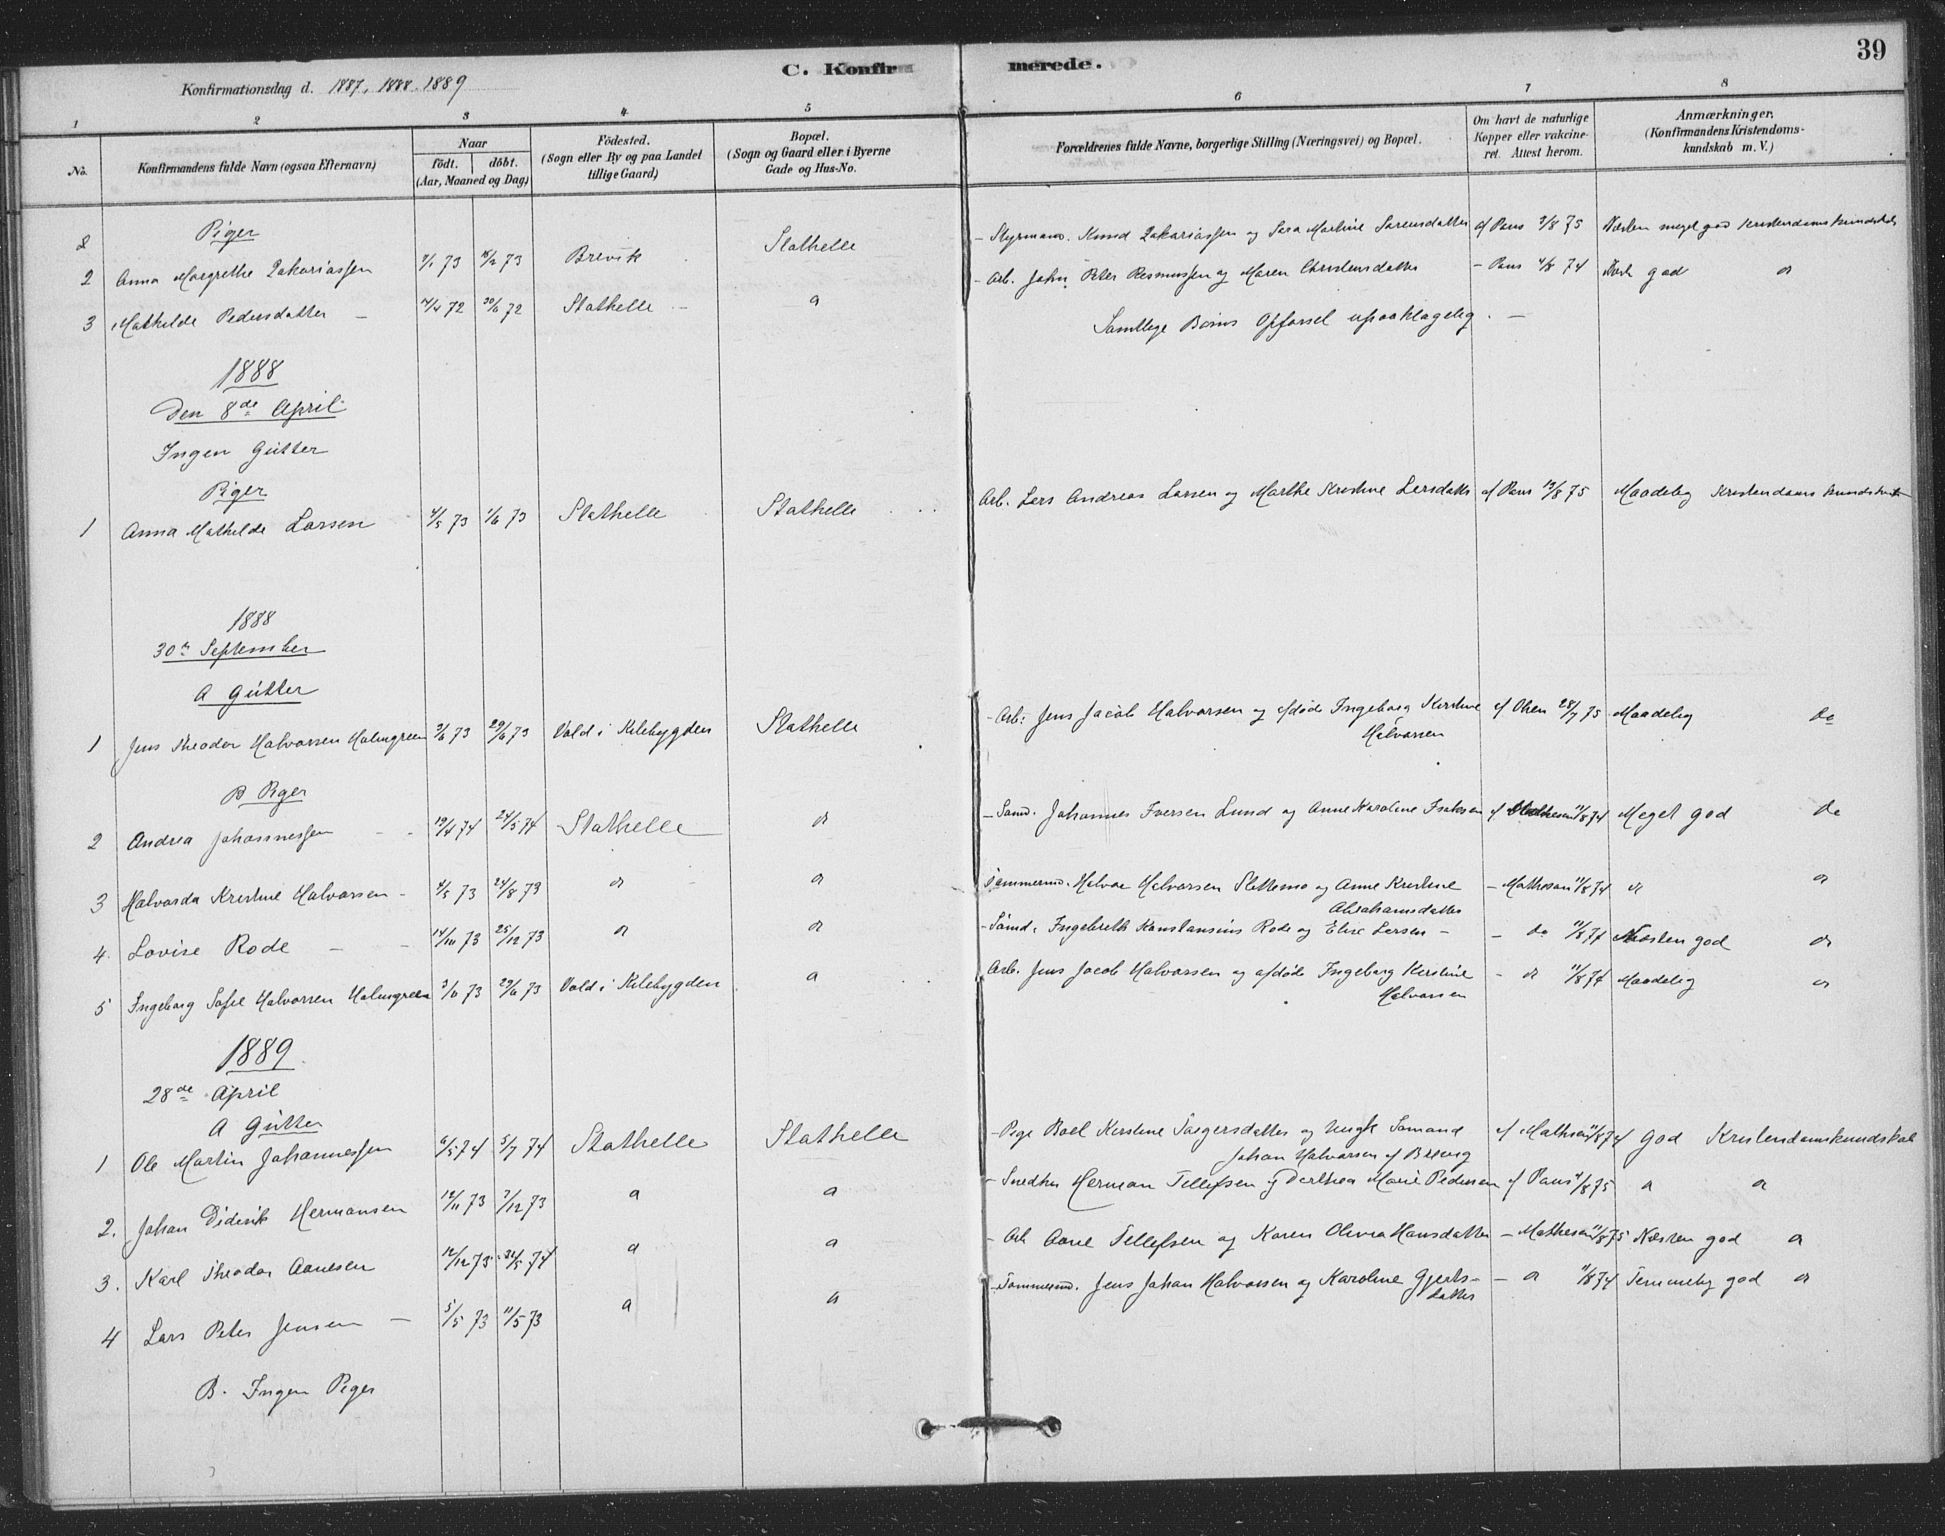 39
C. Konfirmerede.
Konfirmationsdag d. 1887, 1888. 1889
1 2 3 4 5 6 7 8
No. Konfirmandens fulde Navn (ogsaa Efternavn) Naar födt. döbt. (Aar, Maaned og Dag) Födested. (Sogn eller By og paa Landet tillige Gaard) Bopæl. (Sogn og Gaard eller i Byerne Gade og Hus-No. Forældrenes fulde Navne, borgerlige Stilling (Næringsvei) og Bopæl. Om havt de naturlige Kopper eller vakcineret. Attest herom. Anmærkninger. (Konfirmandens Kristendomskundskab m. V.)
Piger
2 Anna Margrethe Zakariassen 73 73 Brevik Stathelle Styrmand. Knud Zakariassen og Sara Martine Sørensdatter af Paus 75 Næsten meget god Kristendomskundskab
3 Mathilde Pedersdatter – 72 72 Stathelle – Arb. John Peter Rasmussen og Maren Christensdatter – Paus 4/8 74 god
Samtlige Børns Opførsel upaaklagelig. –
1888
Den 8de April
Ingen Gutter
Piger
1 Anna Mathilde Larsen 4/5 73 1/6 73 Stathelle Stathelle Arb. Lars Andreas Larsen og Marthe Kristine Larsdatter af Paus 75 Maadelig Kristendomskundskab
1888
30te September
A Gutter
1 Jens Theodor Halvorsen Holmgreen 3/6 73 29/6 73 Vold i Kilebygden Stathelle – Arb. Jens Jacob Halvorsen og afdøde Ingeborg Kirstine Halvorsen af Olsen 28/7 75 Maadelig do
B Piger
2 Andrea Johannessen 19/4 74 24/5 74 Stathelle do – Sømd. Johannes Iversen Lund og Anne Karoline Isaksen af Mathesen 11/8 74 Meget god do
3 Halvorda Kristine Halvorsen – 4/5 73 24/8 73 do do Tømmermd. Halvor Halvorsen Slettemo og Anne Kristine Abrahamsdatter – Mathesen 11/8 74 do do
4. Lovise Rode – 14/10 73 25/12 73 do do – Sømd. Ingebreth Konstansius Rode og Elise Larsen – – do 11/8 74 Næsten god do
5 Ingeborg Sofie Halvorsen Holmgreen 3/6 73 29/6 73 Vold i Kilebygden do Arb. Jens Jacob Halvorsen og afdøde Ingeborg Kirstine Halvorsen – do 11/8 74 Maadelig do
1889
28de April
A Gutter
1 Ole Martin Johannessen 6/5 74 5/7 74 Stathelle Stathelle – Pige Boel Kirstine og Ungk Sømand Johan Halvorsen af af Mathesen 11/8 74 god Kristendomskundskab
2. Johan Diderik Hermansen 12/11 73 7/12 73 do do – Snedker Herman Tellefsen og Dorthea Marie Pedersen af Paus 4/8 75 do do
3. Karl Theodor Aanesen 12/12 73 74 do do – Arb Aane Tellefsen og Karen Olivia Hansdatter – Mathesen 11/8 75 Næsten god do
4 Lars Peter Jensen – 5/5 73 11/5 73 do do – Tømmermd. Jens Johan Halvorsen og Karoline Gjertsdatter – do 11/8 74 Temmelig god do
B. Ingen Piger